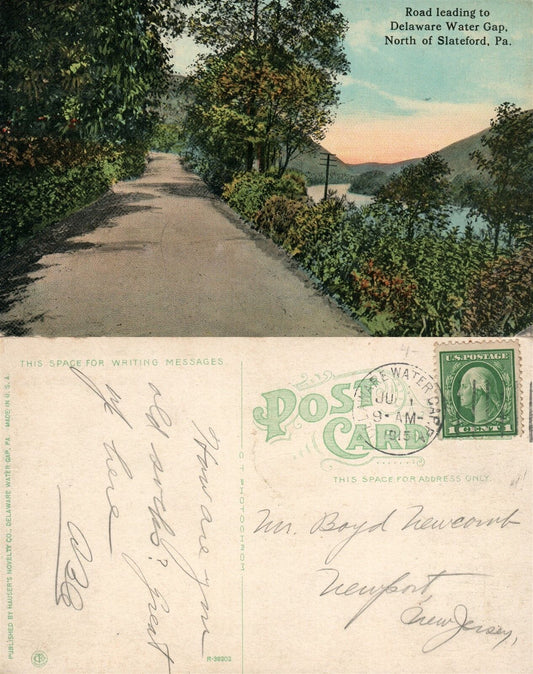 Road leading to
Delaware Water Gap,
North of Slateford, Pa.
THIS SPACE FOR WRITING MESSAGES
How are you
old socks? Great
up here
PUBLISHED BY HAUSER'S NOVELTY CO., DELAWARE WATER GAP, PA. MADE IN U.S.A.
C T PHOTOCHROM
R-36902
POST CARD
THIS SPACE FOR ADDRESS ONLY.
WATER GAP
JU 1
9-AM-
1915
U.S. POSTAGE
1 CENT 1
Mr. Boyd Newcomb
Newport
New Jersey,